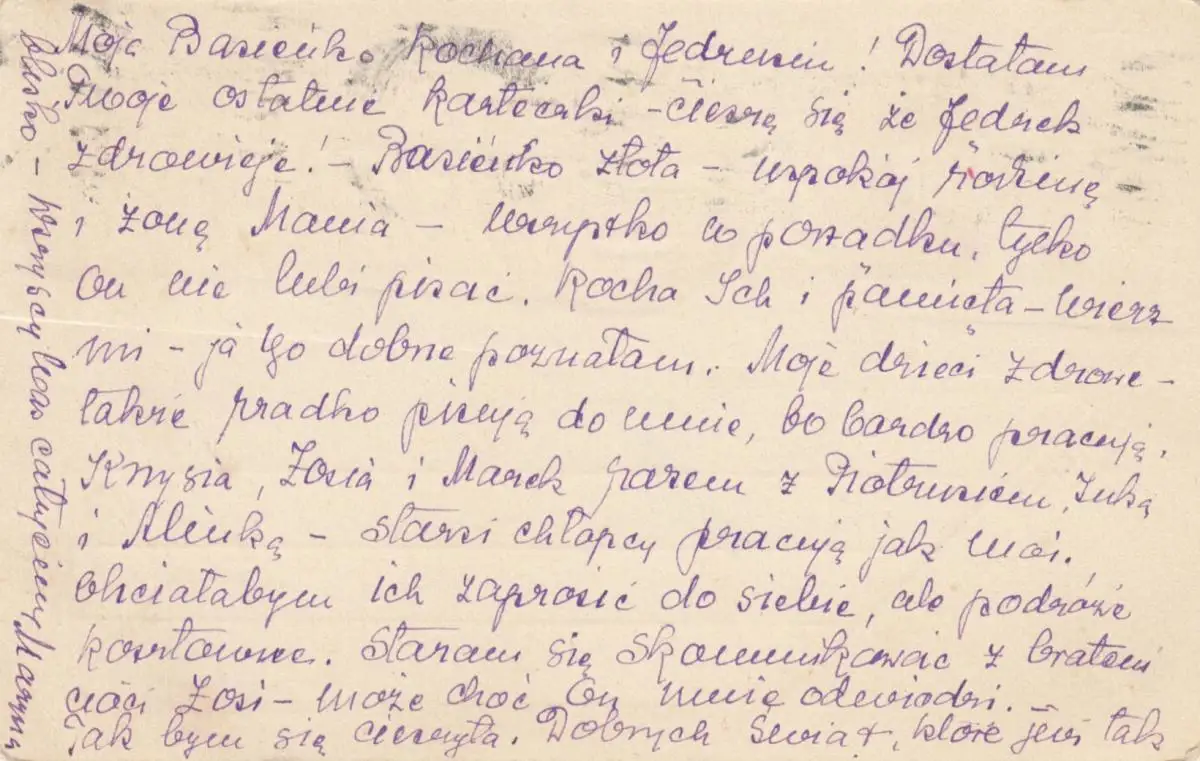 Moja Basieńko kochana i Jędrusiu! Dostałam
Twoje ostatnie karteczki - cieszę się że Jędrek
zdrowieje! - Basieńko złota - uspokój rodzinę
i żonę Mania - wszystko w porządku, tylko
On nie lubi pisać. Kocha Ich i pamięta - wierz
mi - ja Go dobrze poznałam. Moje dzieci zdrowe -
także rzadko piszą do mnie, bo bardzo pracują.
Krysia, Zosia i Marek razem z Piotrusiem,
i Alinką - starsi chłopcy pracują jak moi.
Chciałabym ich zaprosić do siebie, ale podróże
kosztowne. Staram się skomunikować z bratem
cioci Zosi - może choć On mnie odwiedzi. -
Tak bym się cieszyła. Dobrych Świąt, które już tak
blisko - Wszyscy Was całujemy